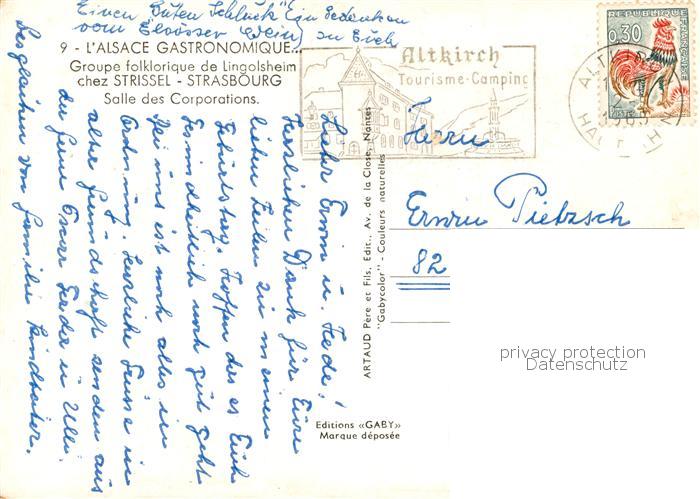 Einen Guten Schluck (in Gedenken
vom Elsässer Wein) zu Euch
9 - L'ALSACE GASTRONOMIQUE...
Groupe folklorique de Lingolsheim
chez STRISSEL - STRASBOURG
Salle des Corporations.
Altkirch
Tourisme-Camping
REPUBLIQUE FRANÇAISE
0,30
Herrn
Erwin Pietzsch
82
Lieber Erwin u. Hede!
Herzlichen Dank für Eure
lieben Zeilen zu meinem
Geburtstag. Hoffen das es Euch
gesundheitlich noch gut geht
bei uns ist noch alles in
Ordnung. Herzliche Grüsse in
alter Freundschaft senden aus
der Ferne Oscar Frieda u. Ulli
Desgleichen von Familie
ARTAUD Père et Fils, Edit., Av. de la Close, Nantes
"Gabycolor" - Couleurs naturelles
Editions «GABY»
Marque déposée
privacy protection
Datenschutz